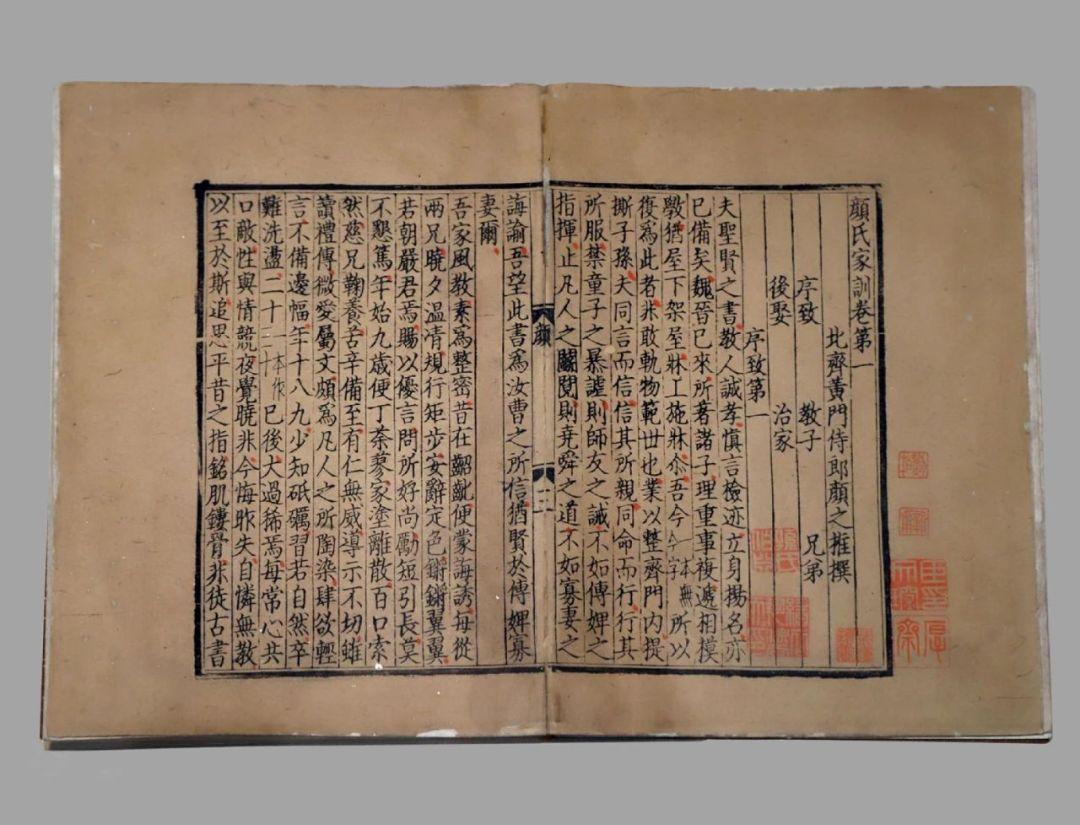 顔氏家訓卷第一
北齊黃門侍郎顔之推撰
序致 教子 兄弟
後娶 治家
序致第一
夫聖賢之書教人誠孝慎言檢迹立身揚名亦
已備矣魏晉已來所著諸子理重事複遞相模
斆猶屋下架屋牀上施牀尒吾今一本無今字所以
復爲此者非敢軌物範世也業以整齊門內提
撕子孫夫同言而信信其所親同命而行行其
所服禁童子之暴謔則師友之誡不如傅婢之
指揮止凡人之鬬鬩則堯舜之道不如寡妻之
誨諭吾望此書爲汝曹之所信猶賢於傅婢寡
妻爾
吾家風教素爲整密昔在齠齔便蒙誨誘每從
兩兄曉夕溫凊規行矩步安辭定色鏘鏘翼翼
若朝嚴君焉賜以優言問所好尚勵短引長莫
不懇篤年始九歲便丁荼蓼家塗離散百口索
然慈兄鞠養苦辛備至有仁無威導示不切雖
讀禮傳微愛屬文頗爲凡人之所陶染肆欲輕
言不備邊幅年十八九少知砥礪習若自然卒
難洗盪二十一本作三十已後大過稀焉每常心共
口敵性與情競夜覺曉非今悔昨失自憐無教
以至於斯追思平昔之指銘肌鏤骨非徒古書
顔
二